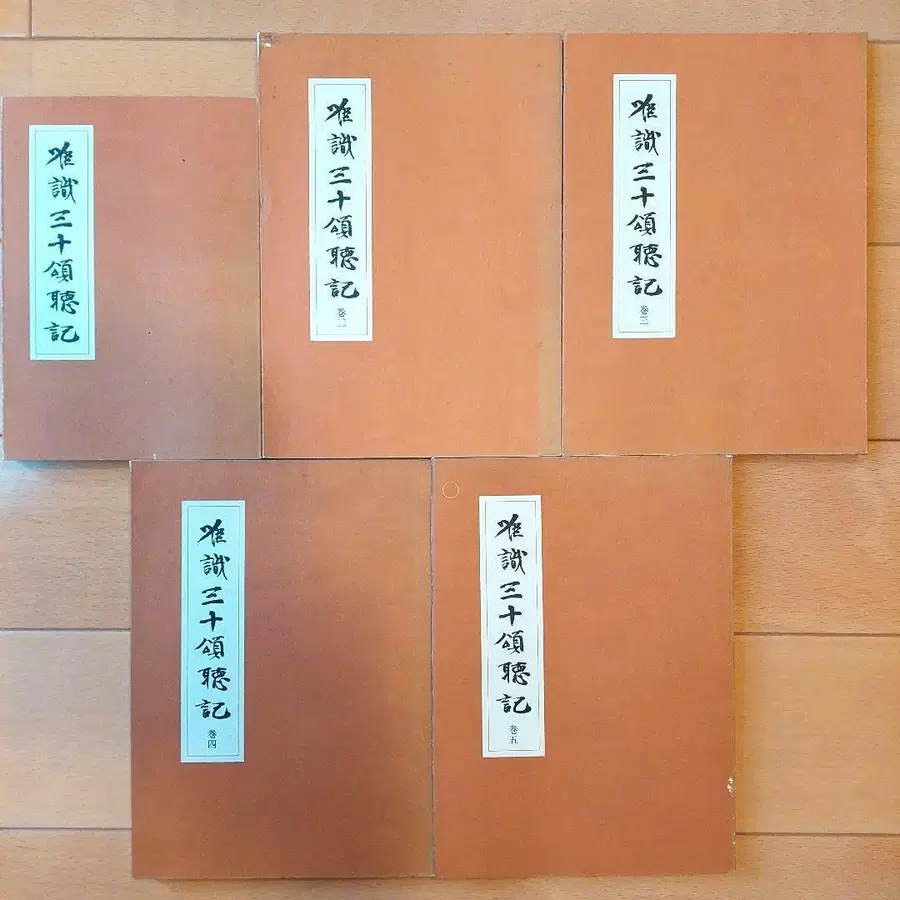 唯識三十頌聽記
唯識三十頌聽記
巻二
唯識三十頌聽記
巻三
唯識三十頌聽記
巻四
唯識三十頌聽記
巻五